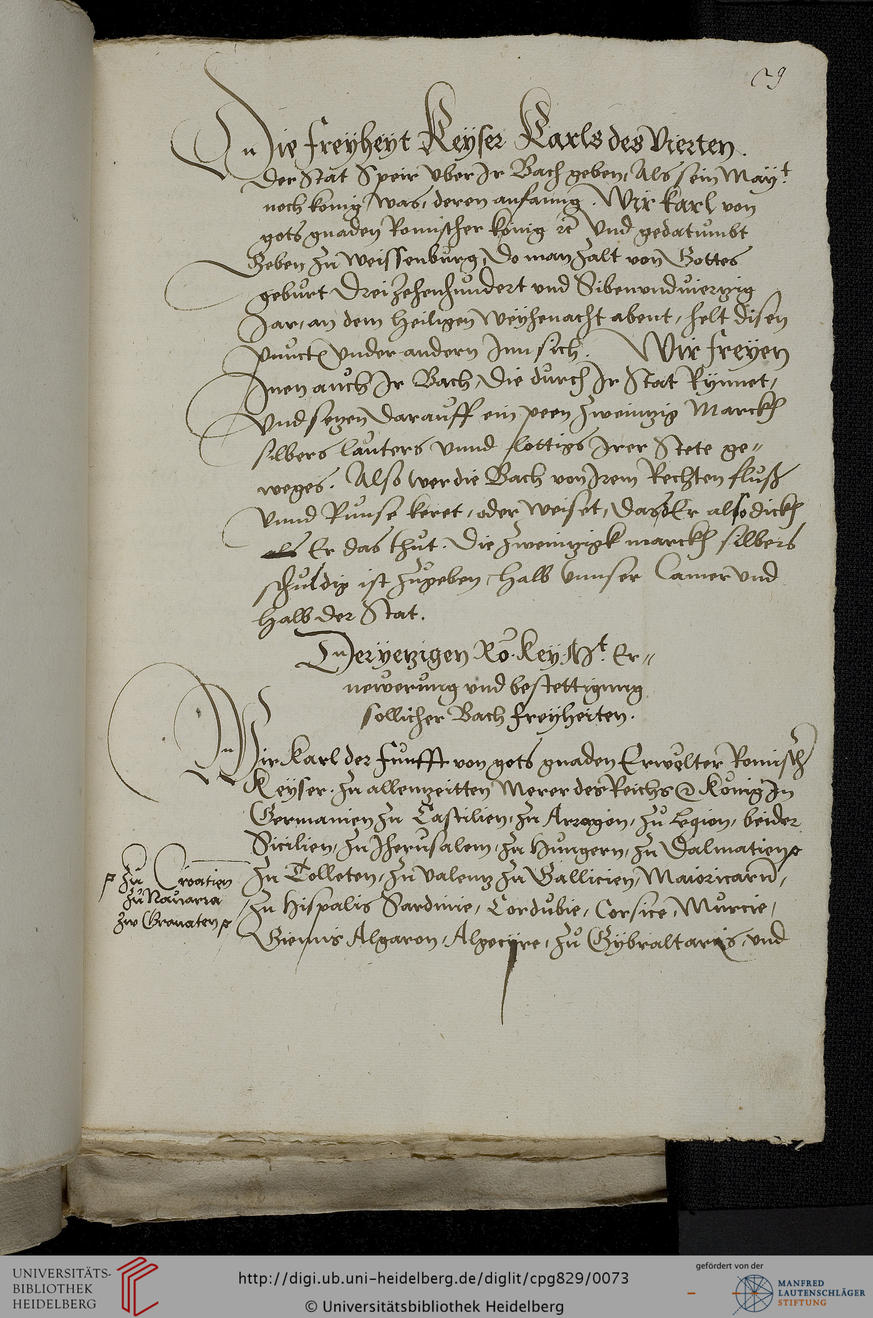 29
Die freÿheÿt Keÿser Karls des Vierten.
Der Stat Speir vber Ir Bach geben, Als sein Maÿt.
noch konig was, deren anfanng. Wir Karl von
gots gnaden Romischer konig &c Vnd gedatumbt
Geben zu Weissenburg, Do man zalt von Gottes
geburt Dreizehenhundert vnd Sibenvndviertzig
Jar, an dem Heiligen Weÿhenacht abent, helt disen
punct vnder andern Inn sich. Wir freÿen
Inen auch Ir Bach, die durch Ir Stat Rÿnnet,
Vnd setzen darauff ein peen zweintzig Marckh
silbers lauters vnnd lottigs Irer Stete ge=
weges. Also wer die Bach von Irem Rechten fluß
Vnnd Runse keret, oder weiset, Das Er also dickh
als Er das thut. Die zweintzigk marckh silbers
schuldig ist zugeben, halb vnnser Camer vnd
halb der Stat.
Der ÿetzigen Ro. Keÿ. Mt. Er=
newerung vnd bestettigung
sollicher Bach freÿheiten.
Wir Karl der Funfft von gots gnaden Erwelter Romisch
Keÿser. zu allennzeitten Merer des Reichs &c Konig In
Germanien zu Castilien, zu Arragon, zu Legion, beider
Sicilien, zu Jherusalem, zu Hungern, zu Dalmatien
zu Croatien
zu Nauarra
zw Gronaten
zu Tolleten, zu Valentz zu Gallicien, Maioricarum,
zu Hispalis Sardinie, Cordubie, Corsice, Murcie,
Giennis Algaron, Algecÿre, zu Gÿbraltaris, vnd
UNIVERSITÄTS-
BIBLIOTHEK
HEIDELBERG
http://digi.ub.uni-heidelberg.de/diglit/cpg829/0073
© Universitätsbibliothek Heidelberg
gefördert von der
MANFRED
LAUTENSCHLÄGER
STIFTUNG